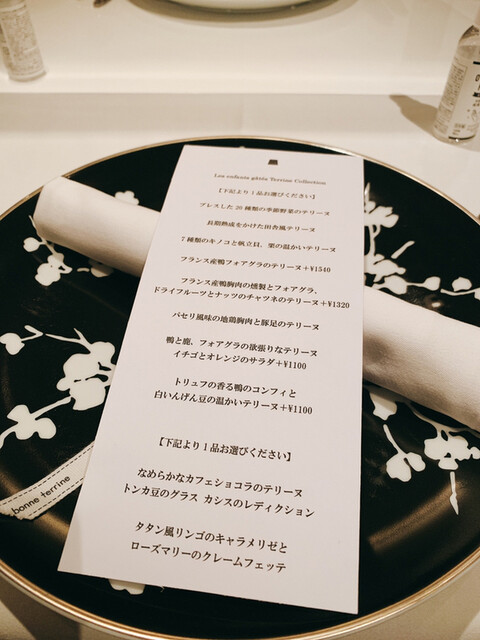 Les enfants gâtés Terrine Collection
【下記より1品お選びください】
プレスした20種類の季節野菜のテリーヌ
長期熟成をかけた田舎風テリーヌ
7種類のキノコと帆立貝、栗の温かいテリーヌ
フランス産鴨フォアグラのテリーヌ+¥1540
フランス産鴨胸肉の燻製とフォアグラ、
ドライフルーツとナッツのチャツネのテリーヌ+¥1320
パセリ風味の地鶏胸肉と豚足のテリーヌ
鴨と鹿、フォアグラの欲張りなテリーヌ
イチゴとオレンジのサラダ+¥1100
トリュフの香る鴨のコンフィと
白いんげん豆の温かいテリーヌ+¥1100
【下記より1品お選びください】
なめらかなカフェショコラのテリーヌ
トンカ豆のグラス カシスのレディクション
タタン風リンゴのキャラメリゼと
ローズマリーのクレームフェッテ
bonne terrine